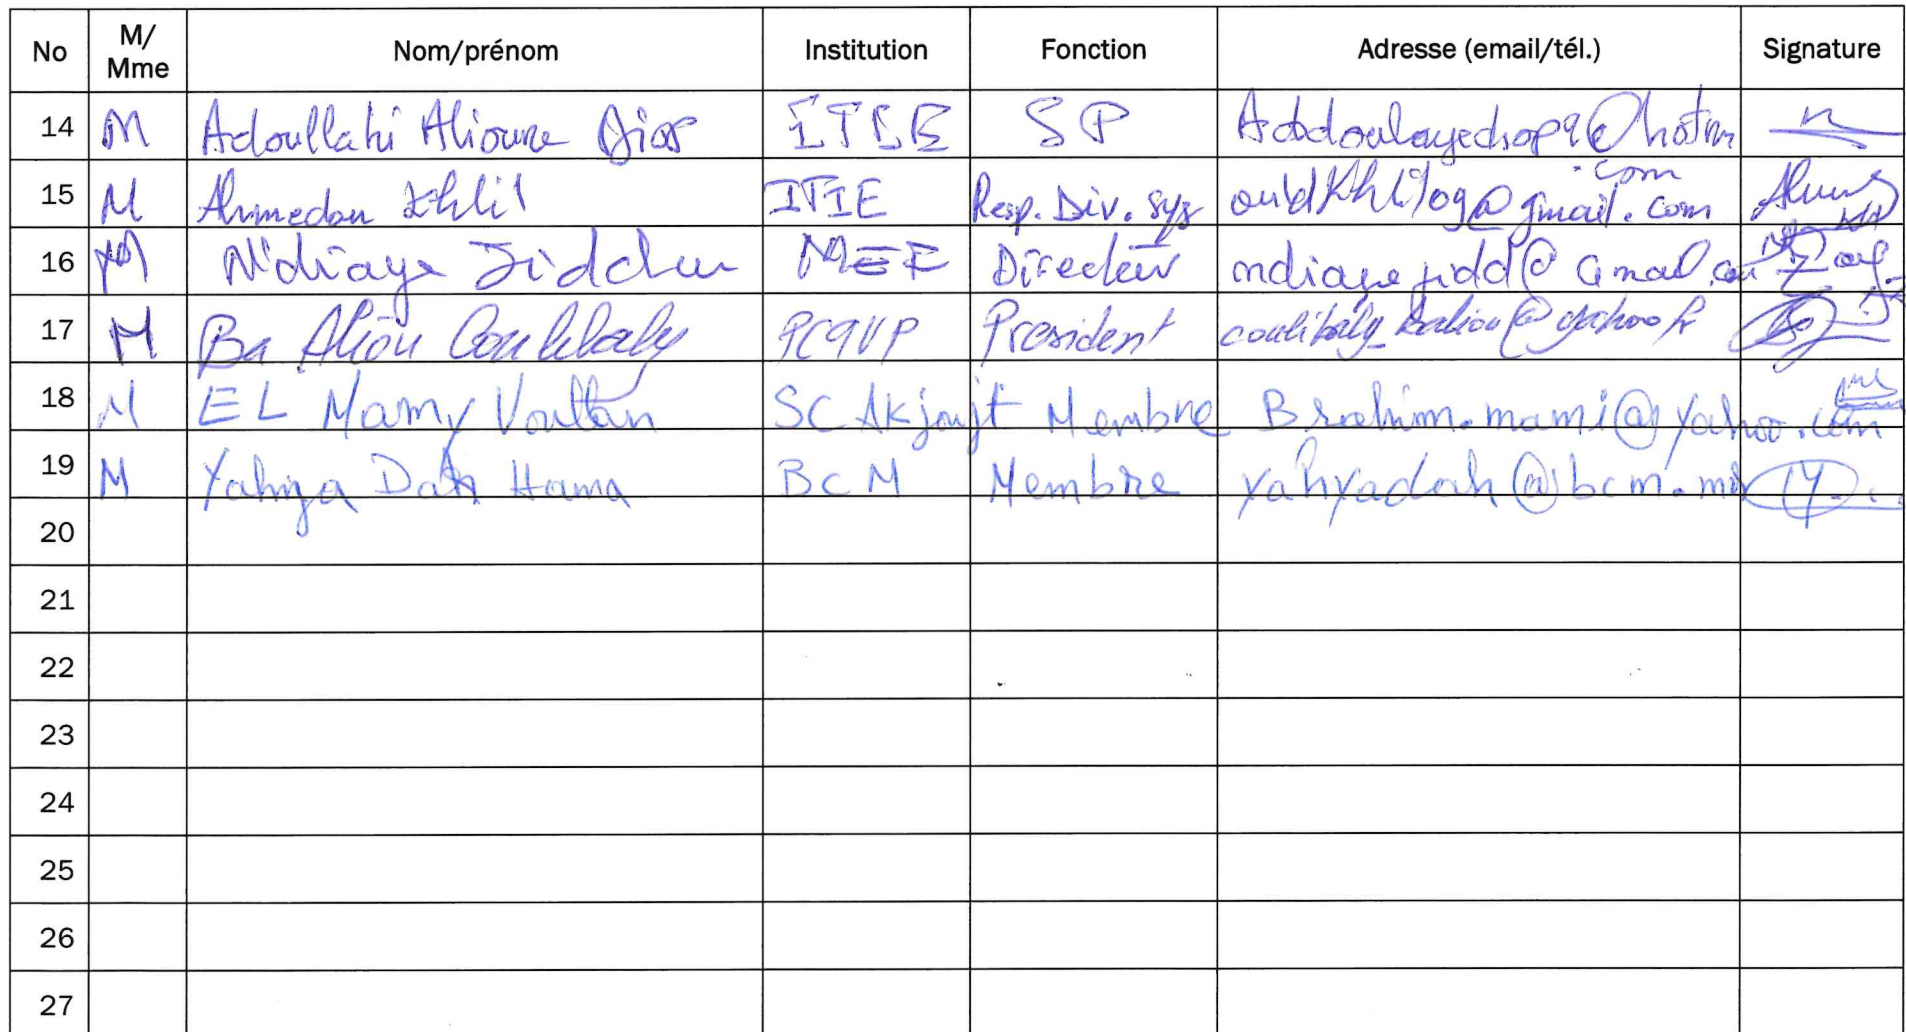 No M/ Mme Nom/prénom Institution Fonction Adresse (email/tél.) Signature
14 M Adoullahi Alioune Diop ITIE SP
.com
15 M Ahmedou Khlil ITIE Resp. Div. Sys ouldkhlil09@gmail.com
16 M N'diaye Jiddou MEF Directeur
17 M Ba Aliou Coulibaly PCQVP President coulibaly_baliou@yahoo.fr
18 M EL Mamy Voultan SC Akjoujt Membre Brahim.mami@yahoo.com
19 M Yahya Dah Hama BCM Membre yahyadah@bcm.mr
20
21
22
23
24
25
26
27